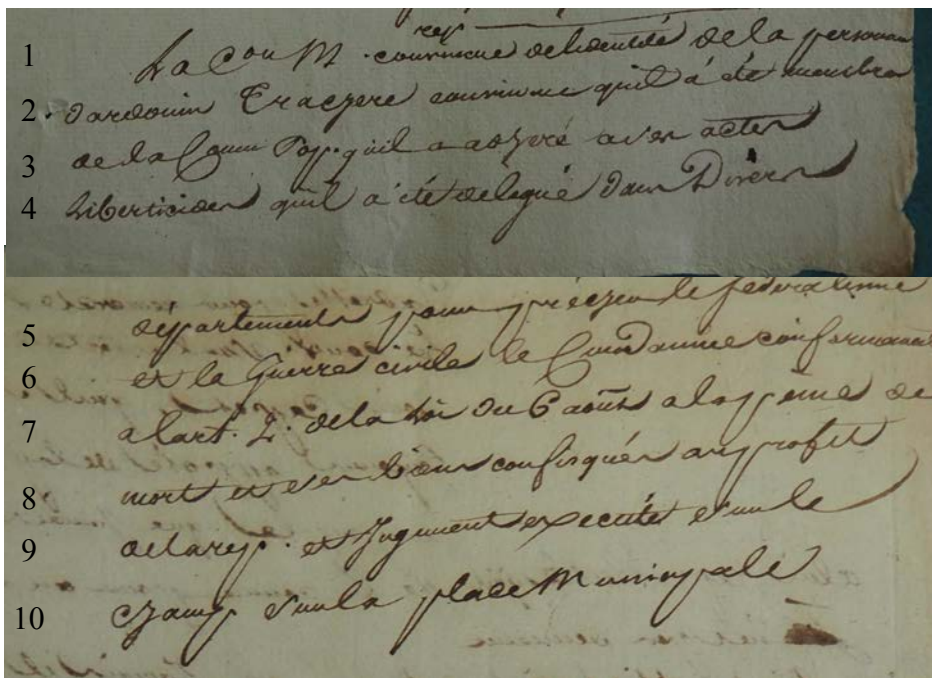 rep
1 La Com M. convaincue de lidentité de la personne
2 dardouin Trachere convaincue quil a été membre
3 de la Comm Pop. quil a adheré a ses actes
4 Liberticides quil a été delegué dans Divers
5 departements pour précher le federalisme
6 et la Guerre civile le Condamne conformement
7 a lart. 2. de la Loi du 6 août a la peine de
8 mort et ses biens confisqués au profit
9 de la rep. et Jugement executé sur le
10 champ sur la place Municipale